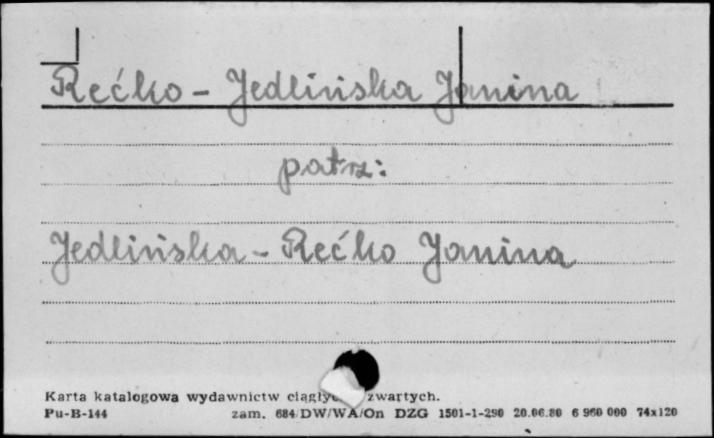 Rećko - Jedlińska Janina
patrz:
Jedlińska - Rećko Janina
Karta katalogowa wydawnictw zwartych.
Pu-B-144 zam. 684/DW/WA/On DZG 1501-1-290 20.06.80 6 960 000 74x120